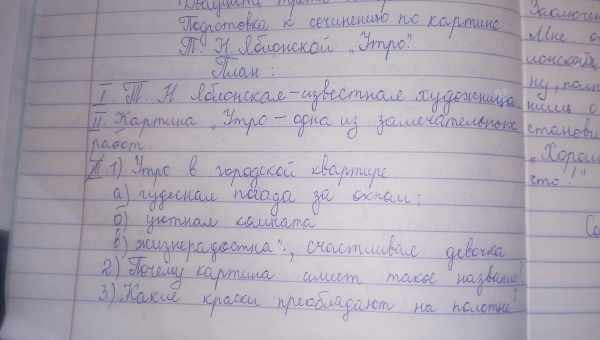 Двадцать
Подготовка к сочинению по картине
Т. Н. Яблонской „Утро".
План:
I. Т. Н Яблонская – известная художница
II. Картина „Утро – одна из замечательных
работ.
1) Утро в городской квартире
а) чудесная погода за окном;
б) уютная комната
в) жизнерадостная, счастливая девочка
2) Почему картина имеет такое название!
3) Какие краски преобладают на полотне!
Заключен
Мне о
лонской
ну, пом
нила о
станови
„Хорош
что!"
Со